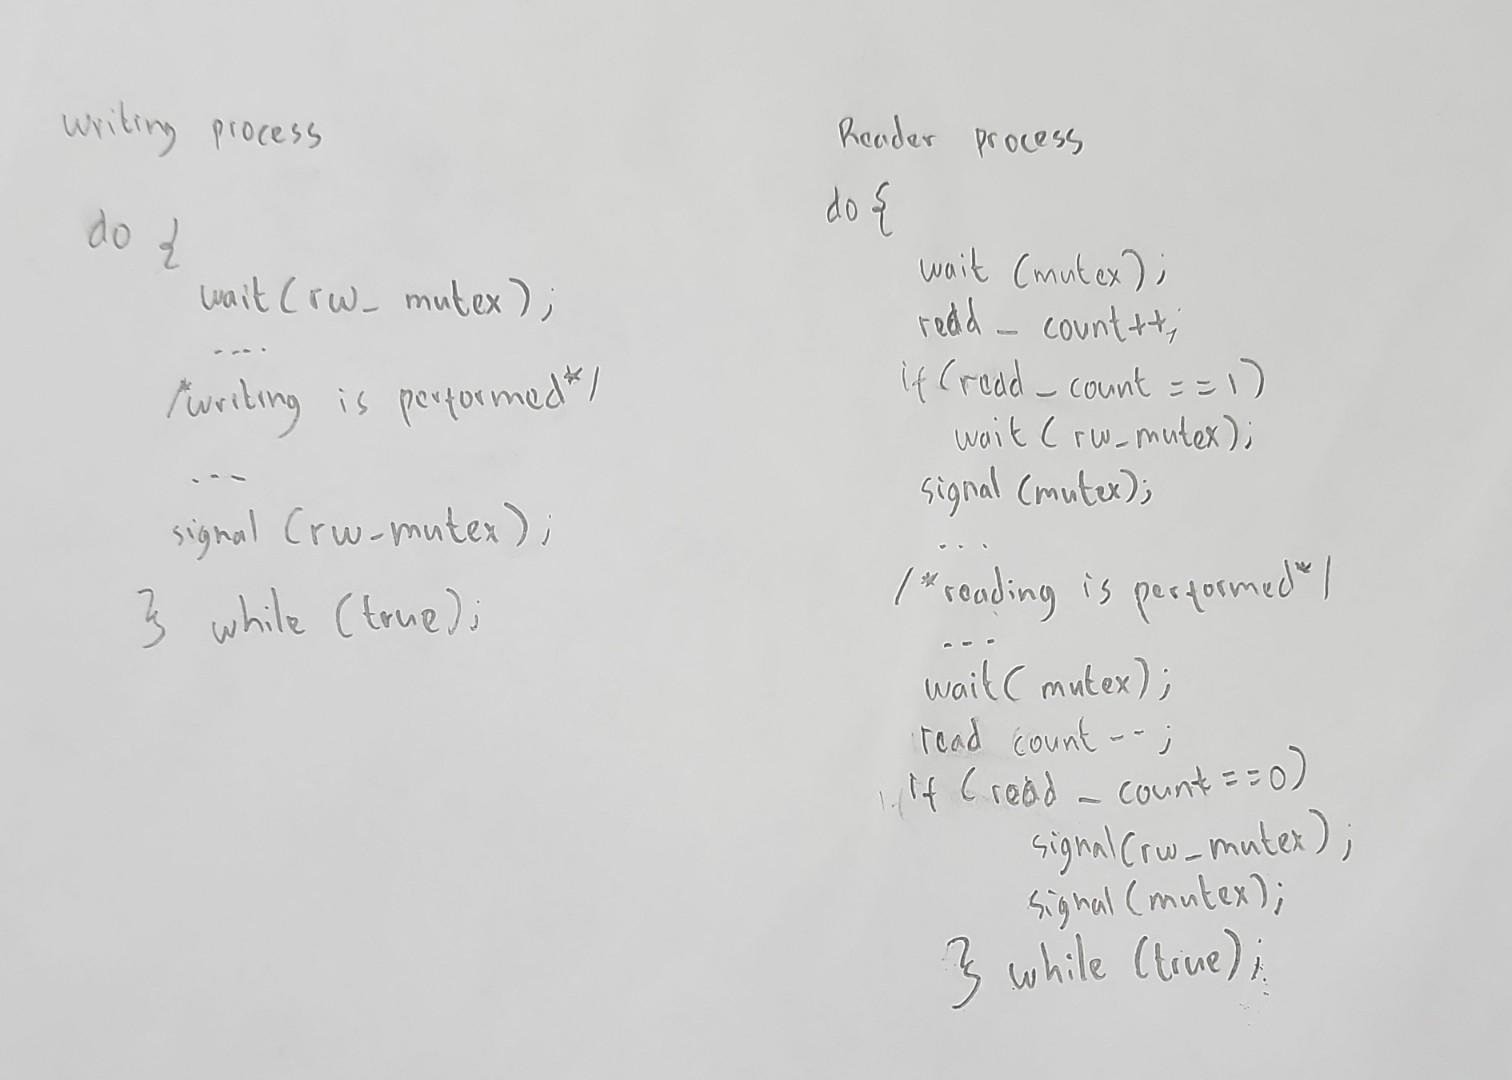 Writing process
do {
wait(rw_ mutex);
....
/*writing is performed*/
---
signal (rw-mutex);
} while (true);
Reader process
do {
wait (mutex);
redd _ count++;
if (redd _ count == 1)
wait ( rw_mutex);
signal (mutex);
...
/*reading is performed*/
---
wait( mutex);
read count -- ;
if ( read _ count == 0)
signal(rw_mutex);
signal (mutex);
} while (true);